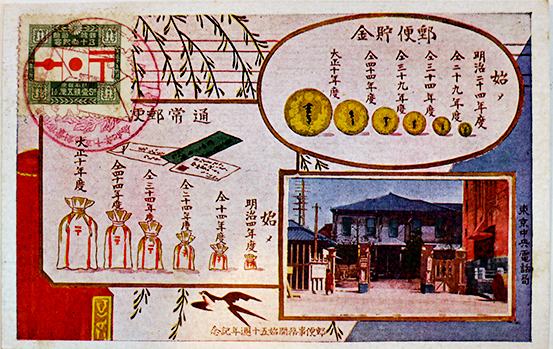 郵便貯金
始メ
明治二十四年度
仝二十九年度
仝三十四年度
仝三十九年度
仝四十四年度
大正十年度
通常郵便
始メ
明治四年度
仝十四年度
仝二十四年度
仝三十四年度
仝四十四年度
大正十年度
東京中央電話局
郵便事業開始五十週年記念